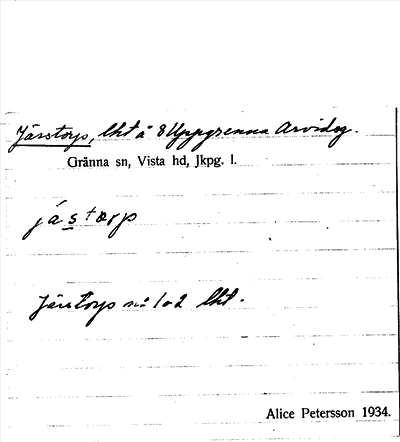 Järstorp, lht å 8 Uppgrenna Arvidsg.
Gränna sn, Vista hd, Jkpg. l.
já s tωrp
Järstorp nr 1 o 2 lht.
Alice Petersson 1934.